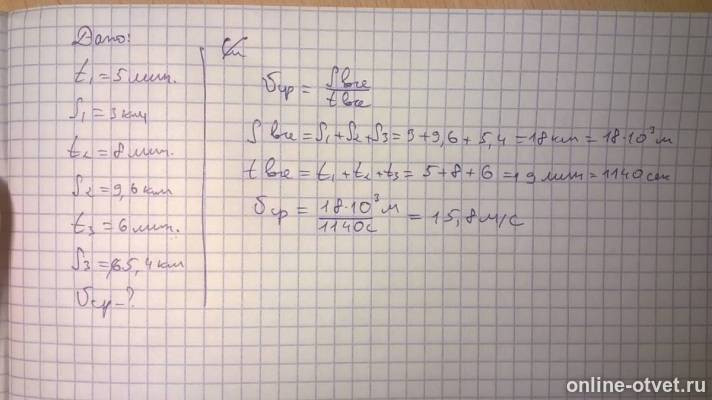 Дано:
t₁ = 5 мин.
S₁ = 3 км
t₂ = 8 мин.
S₂ = 9,6 км
t₃ = 6 мин.
S₃ = 5,4 км
υср - ?
υср = Sвсе / tвсе
Sвсе = S₁ + S₂ + S₃ = 3 + 9,6 + 5,4 = 18 км = 18·10³ м
tвсе = t₁ + t₂ + t₃ = 5 + 8 + 6 = 19 мин = 1140 сек
υср = 18·10³ м / 1140 с = 15,8 м/с
online-otvet.ru